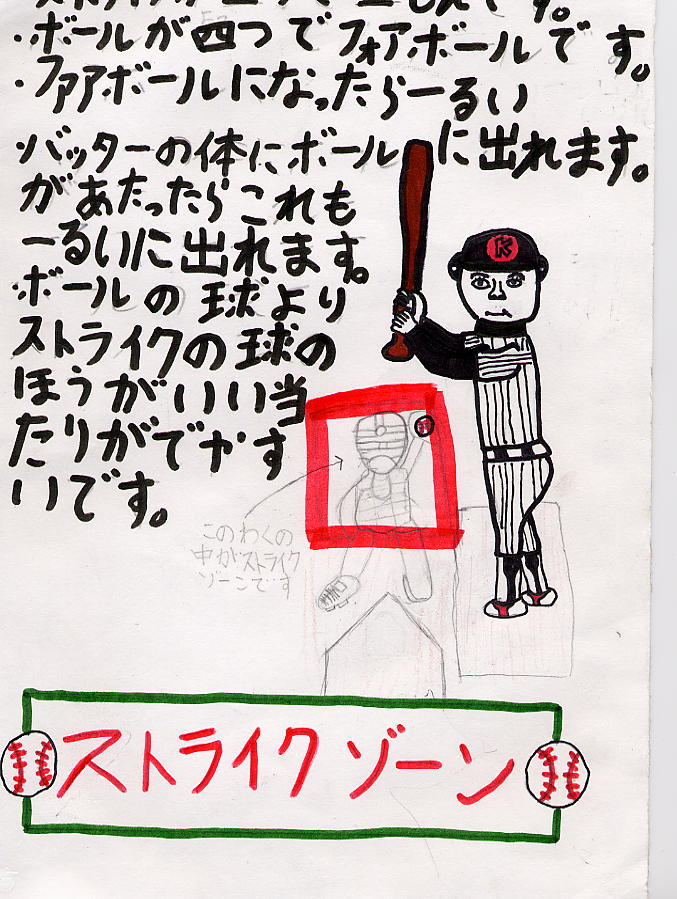 です。
・ボールが四つでフォアボールです。
・ファアボールになったら一るい
に出れます。
・バッターの体にボール
があたったらこれも
一るいに出れます。
・ボールの球より
ストライクの球の
ほうがいい当
たりがでやす
いです。
K
このわくの
中がストライク
ゾーンです
ストライクゾーン